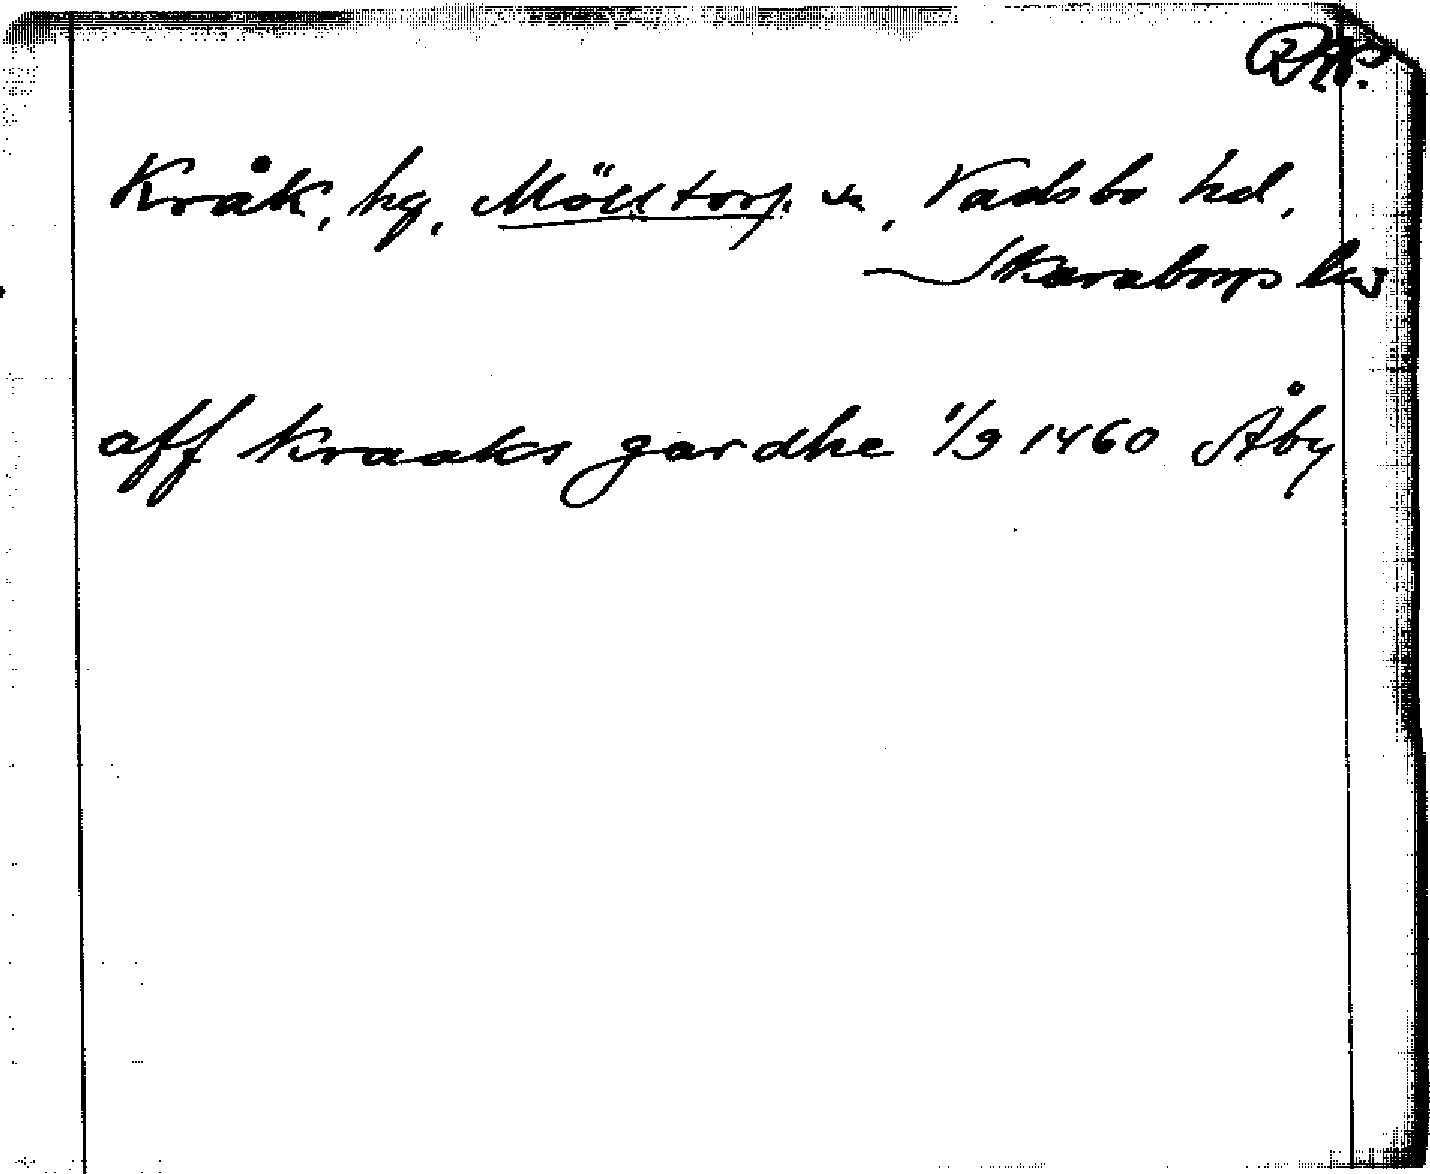 Kråk, hg, Mölltorp sn, Vadsbo hd,
Skaraborgs län
aff kraaks gardhe 1/9 1460 Åby